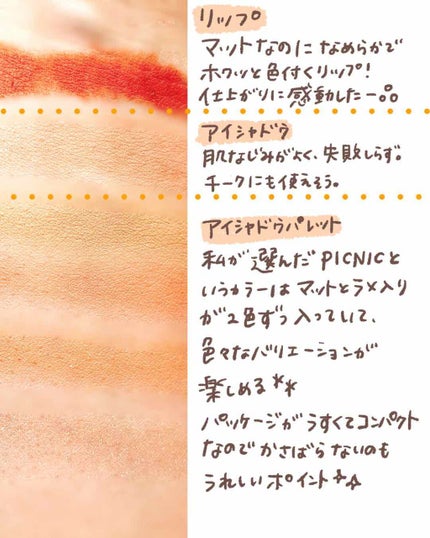 リップ
マットなのになめらかで
ホワッと色付くリップ!
仕上がりに感動したー。。
アイシャドウ
肌なじみがよく、失敗しらず。
チークにも使えそう。
アイシャドウパレット
私が選んだPICNICと
いうカラーはマットとラメ入り
が2色ずつ入っていて、
色々なバリエーションが
楽しめる**
パッケージがうすくてコンパクト
なのでかさばらないのも
うれしいポイント✧✧